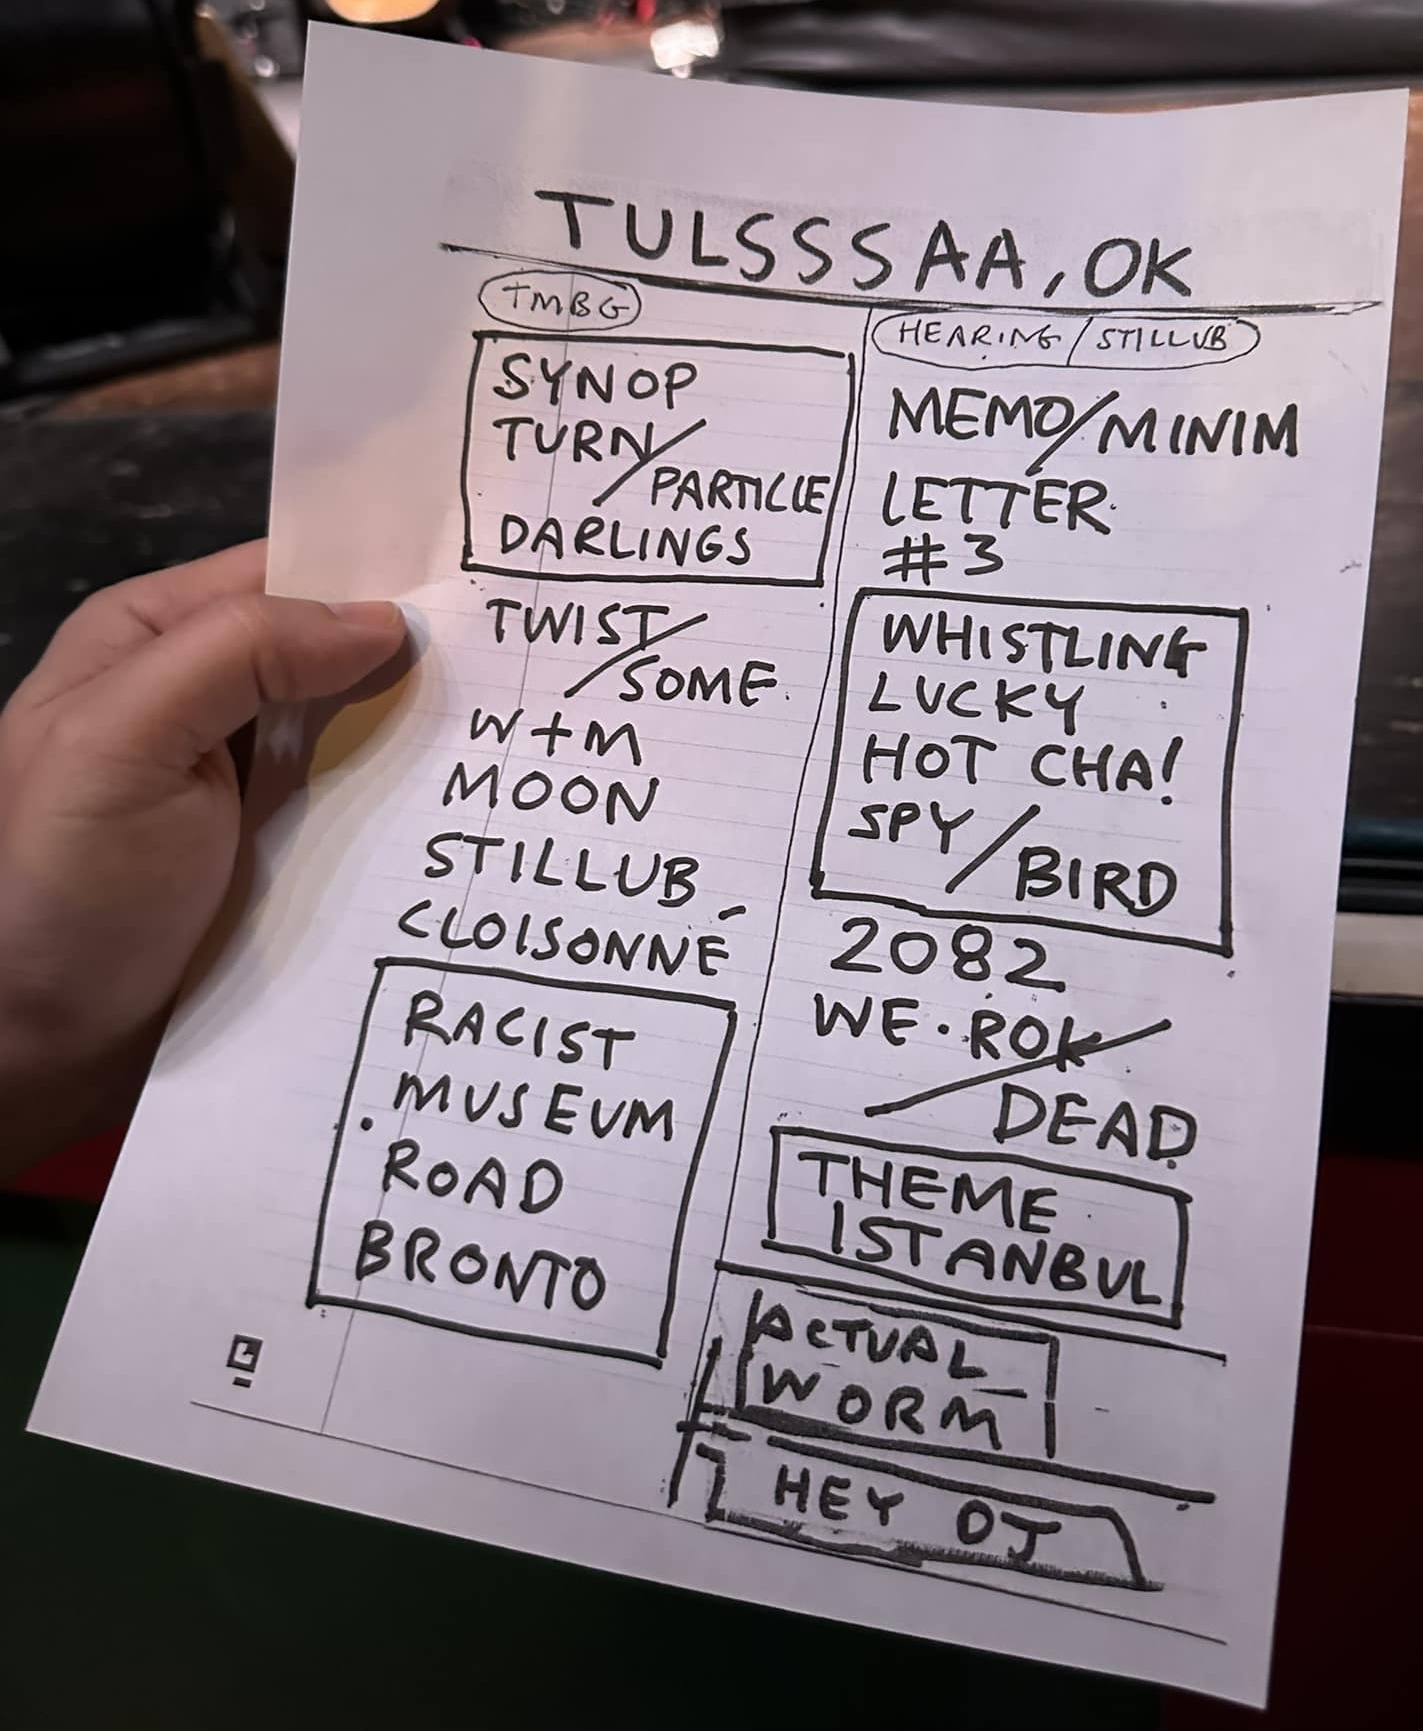 TULSSSAA, OK
TMBG
SYNOP
TURN/
/PARTICLE
DARLINGS
TWIST/
/SOME
W+M
MOON
STILLUB
CLOISONNÉ
RACIST
MUSEUM
ROAD
BRONTO
HEARING/STILLUB
MEMO/MINIM
LETTER
#3
WHISTLING
LUCKY
HOT CHA!
SPY/BIRD
2082
WE·ROK/
/DEAD
THEME
ISTANBUL
ACTUAL
WORM
HEY DJ